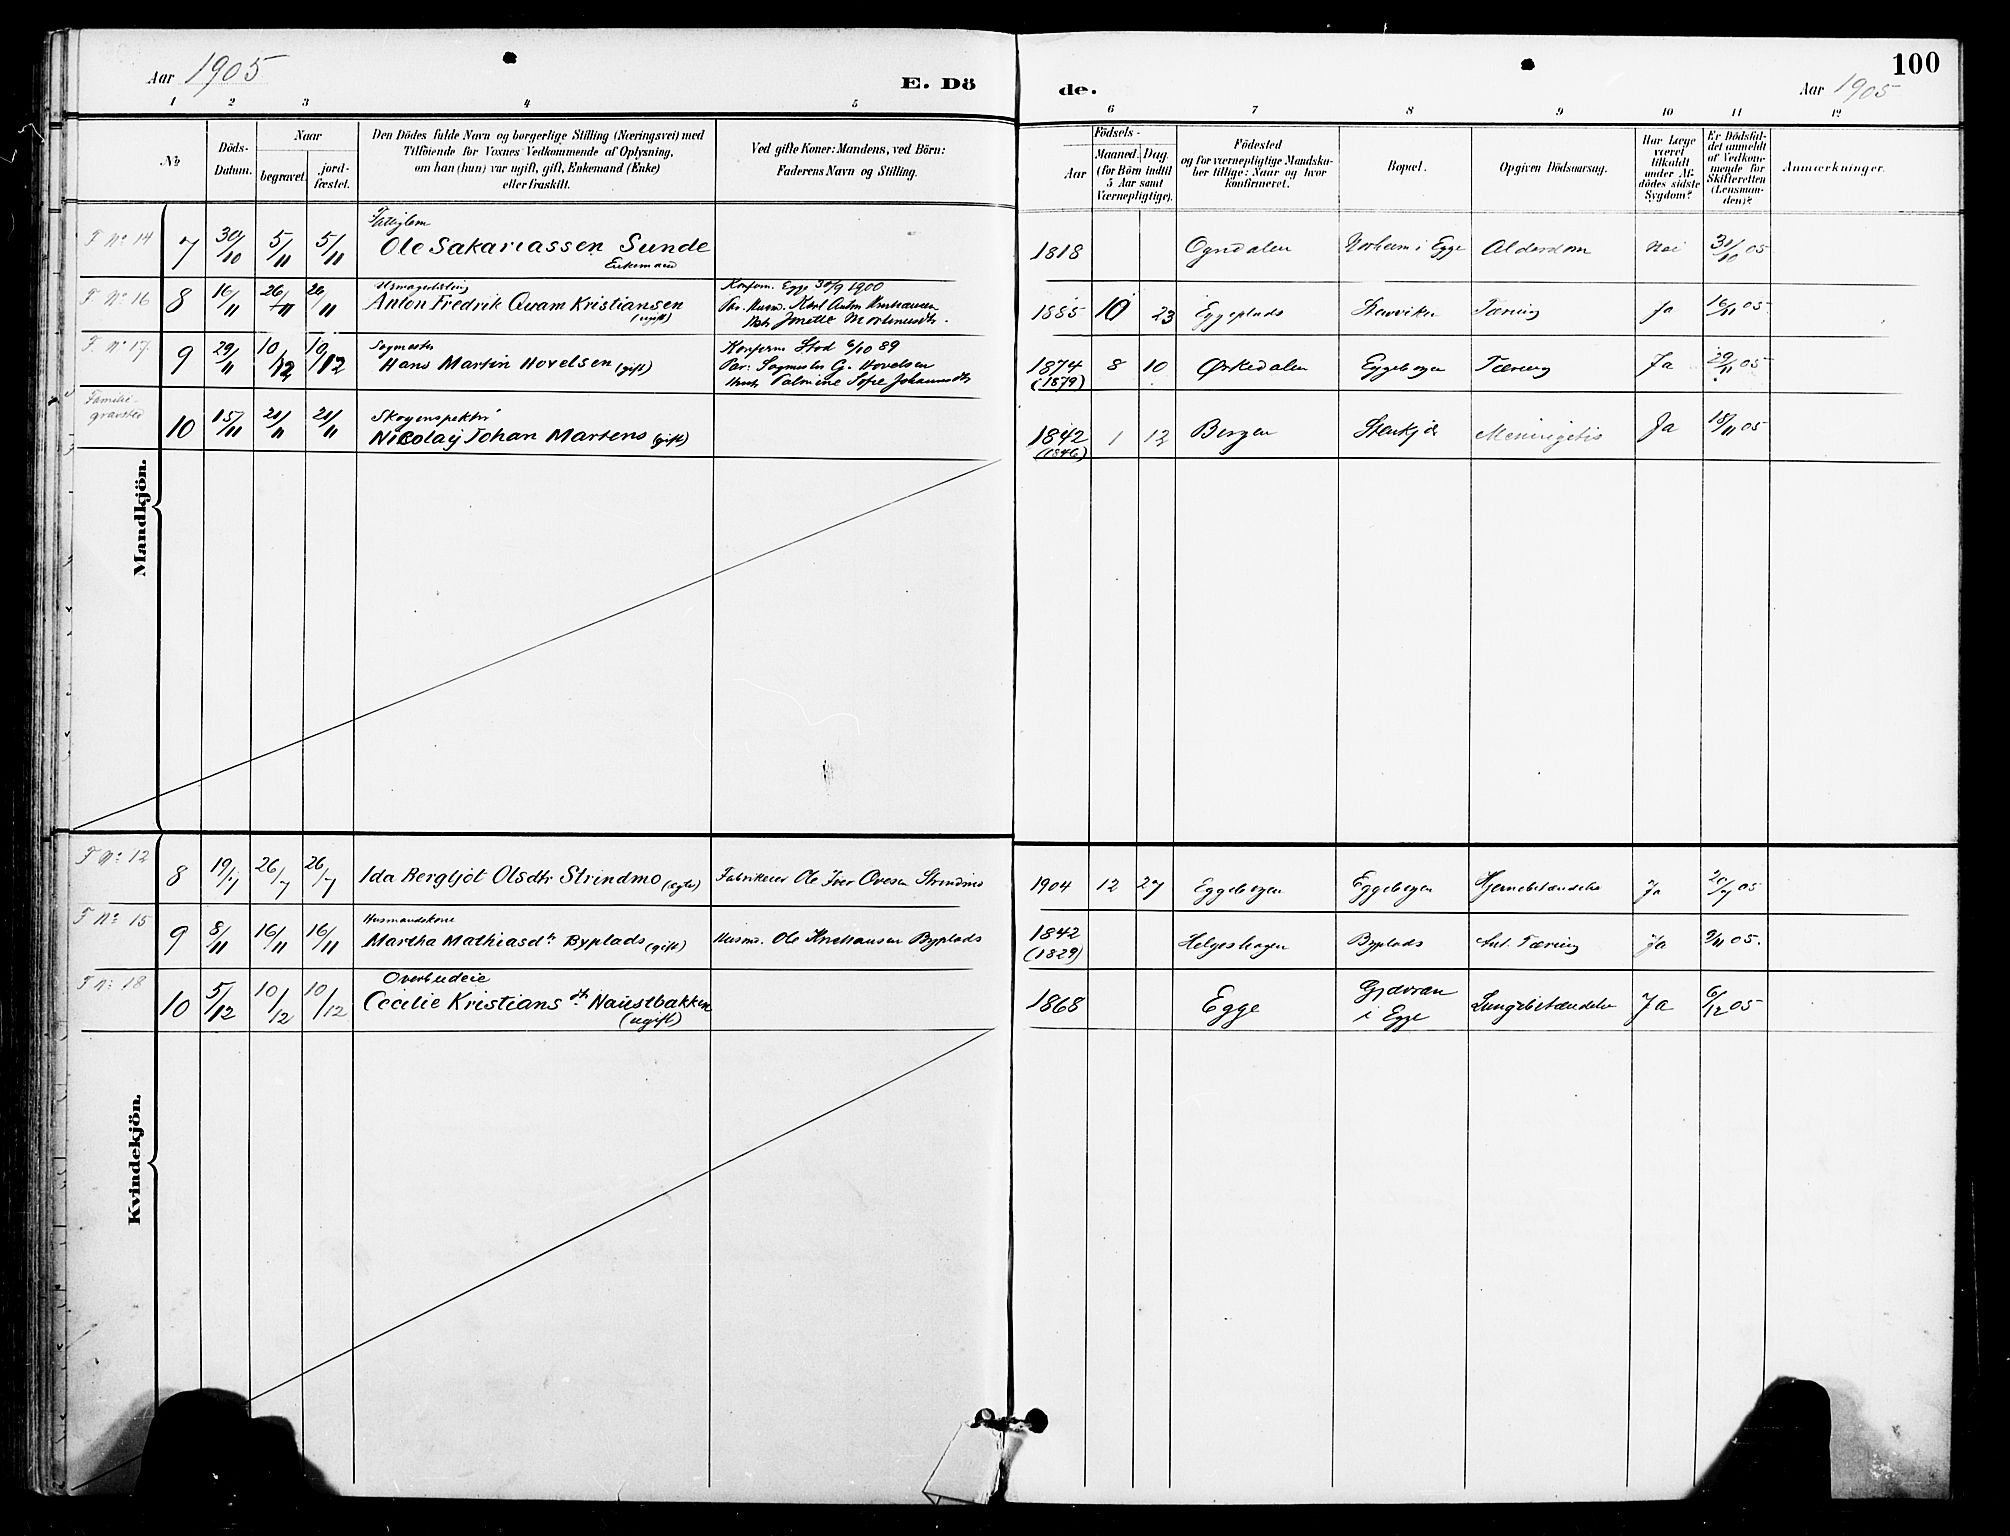 Aar 1905
E. Dö
de.
Aar 1905
100
1 2 3 4 5 6 7 8 9 10 11 12
№
Döds-
Datum.
Naar
begravet.
jord-
fæstet.
Den Dödes fulde Navn og borgerlige Stilling (Næringsvei) med
Tilföiende for Voxnes Vedkommende af Oplysning,
om han (hun) var ugift, gift, Enkemand (Enke)
eller fraskilt.
Ved gifte Koner: Mandens, ved Börn:
Faderens Navn og Stilling.
Födsels-
Aar
Maaned. Dag.
(for Börn indtil
5 Aar samt
Værnepligtige).
Födested
og for værnepligtige Mandska-
ber tillige: Naar og hvor
konfirmeret.
Bopæl.
Opgiven Dödsaarsag.
Har Læge
været
tilkaldt
under Af-
dödes sidste
Sygdom?
Er Dödsfal-
det anmeldt
af Vedkom-
mende for
Skifteretten
(Lensman-
den)?
Anmærkninger.
Mandkjön.
F No 14
7 30/10 5/11 5/11
Fattiglem
Ole Sakariassen Sunde
Enkemand
1818 Ogndalen Norheim i Egge Alderdom Nei 31/10 05
F No 16
8 16/11 26/11 26/11
Anton Fredrik Qvam Kristiansen
(ugift)
Konfirm. Egge 30/9 1900
Par. Husm. Karl Anton Kristiansen
1885 10 23 Eggeplads Tæring Ja 16/11 05
F No 17.
9 29/11 10/12 10/12
Sagmester
Hans Martin Hovelsen (gift)
Konfirm Stod 6/10 89
Par: Sagmester G. Hovelsen
Palmine Sofie Johannesdtr
1874 8 10 Ørkedalen Eggebogen Tæring Ja 29/11 05
(1879)
Familie-
gravsted
10 15/11 21/11 21/11
Skoginspektør
Nicolaij Johan Martens (gift)
1842 1 12 Bergen Stenkjær Meningitis Ja 18/11 05
(1846)
Kvindekjön.
F No 12
8 19/7 26/7 26/7
Ida Bergljot Olsdtr Strindmo (ægte)
Fabrikeier Ole Iver Ovesen Strindmo
1904 12 27 Eggebogen Eggebogen Hjernebetændelse Ja 20/7 05
F No 15
9 8/11 16/11 16/11
Husmandskone
Martha Mathiasdtr Byplads (gift)
Husm. Ole Kristiansen Byplads
1842 Helgeshagen Byplads Ant. Tæring Ja 9/11 05.
(1829)
F No 18
10 5/12 10/12 10/12
Overbudeie
Cecilie Kristiansdtr Naustbakken
(ugift)
1868 Egge Gjævran Lungebetændelse Ja 6/12 05
i Egge